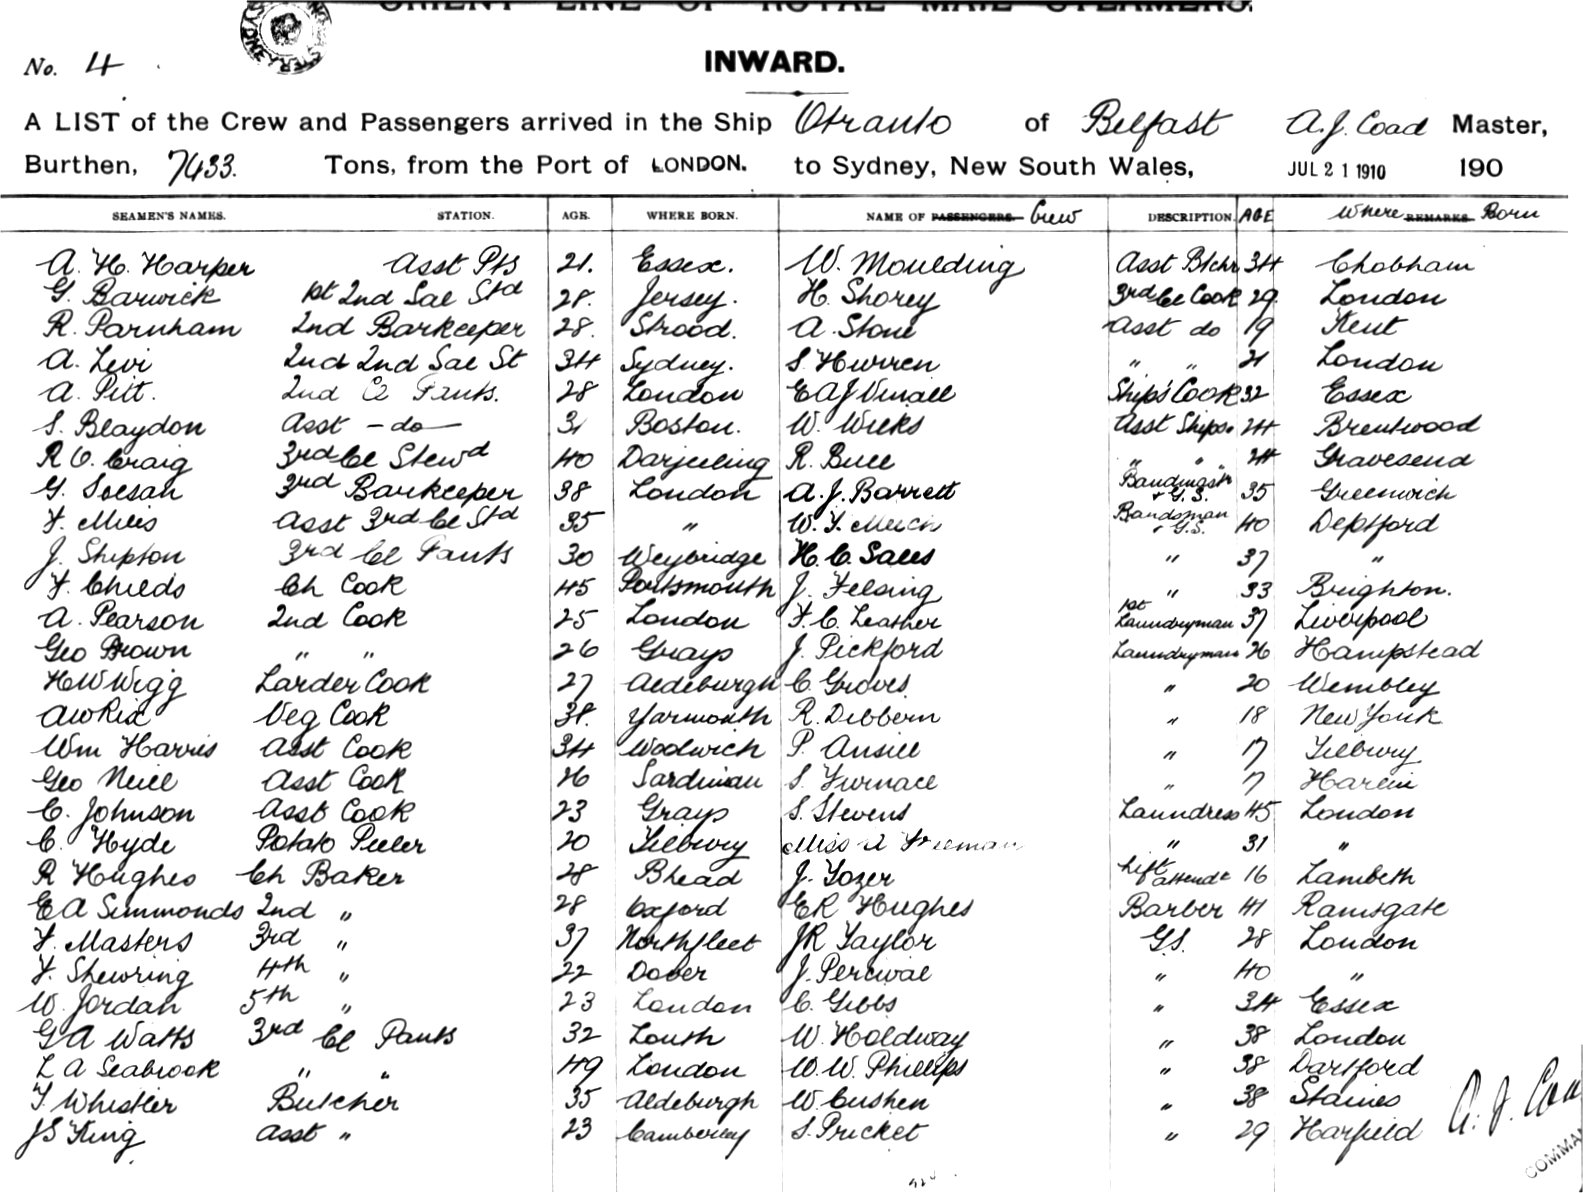 ORIENT LINE OF ROYAL MAIL STEAMERS.
No. 4
INWARD.
A LIST of the Crew and Passengers arrived in the Ship Otranto of Belfast A. J. Coad Master,
Burthen, 7433. Tons, from the Port of LONDON. to Sydney, New South Wales, JUL 21 1910 190
SEAMEN'S NAMES. STATION. AGE. WHERE BORN. NAME OF PASSENGERS. Crew DESCRIPTION. AGE Where REMARKS. Born
A. H. Harper Asst Pts 21. Essex. W. Moulding Asst Btchr 34 Chobham
G. Barwick 1st 2nd Sal Std 28. Jersey. H. Shorey 3rd Cl Cook 29. London
R. Parnham 2nd Barkeeper 28. Strood. A. Stone Asst do 19 Kent
A. Levi 2nd 2nd Sal St 34 Sydney. S. Hurren " " 21 London
A. Pitt. 2nd Cl Pants. 28 London E A J Vinall Ship's Cook 32 Essex
S. Blaydon Asst - do - 31 Boston. W. Weeks Asst Ships. 24 Brentwood
R C. Craig 3rd Cl Stewd 40 Darjeeling R. Bull " " 24 Gravesend
G. 3rd Barkeeper 38 London A. J. Barrett Bandmstr & G.S. 35 Greenwich
F. Mills Asst 3rd Cl Std 35 " W. F. Bandsman & G.S. 40 Deptford
J. Shipton 3rd Cl Pants 30 Weybridge H. C. Sales " 37 "
F. Childs Ch Cook 45 Portsmouth J. Felsing " 33 Brighton.
A. Pearson 2nd Cook 25 London F. C. Leather 1st Laundryman 37 Liverpool
Geo Brown " " 26 Grays J. Pickford Laundryman 26 Hampstead
H W Wigg Larder Cook 27 Aldeburgh C. Groves. " 20 Wembley
A W Rix Veg Cook 38. Yarmouth R. Dibbern " 18 New York
Wm Harris Asst Cook 34 Woolwich P. Ansill " 17 Tilbury
Geo Neill Asst Cook 26 S. Furnace " 17
C. Johnson Asst Cook 23 Grays S. Stevens Laundress 45 London
C. Hyde Potato Peeler 20 Tilbury Miss A Freeman " 31 "
R Hughes Ch Baker 28 Bhead J. Tozer Lift attendt 16 Lambeth
E A Simmonds 2nd " 28 Oxford E R Hughes Barber 41 Ramsgate
F. Masters 3rd " 37 Northfleet J R Taylor G.S. 28 London
F. Shewring 4th " 22 Dover J. Percival " 40 "
W. Jordan 5th " 23 London C. Gibbs " 34 Essex
G A Watts 3rd Cl Pants 32 Louth W. Holdway " 38 London
L A Seabrook " " 49 London W. W. Phillips " 38 Dartford
F. Whistler Butcher 35 Aldeburgh W. Cushen " 38 Staines
J S King Asst " 23 Camberley S. Pricket " 29 Harfield
A. J. Coa
COMMA